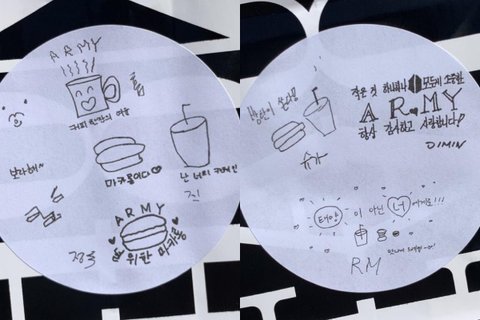 ARMY
홉
커피 한잔의 여유
보라해~
마카롱이다♡
난 너의 카페인
진
ARMY
위한 마카롱
정국
방탄이
슈가
작은 것 하나하나 모두에 소중한
ARMY
항상 감사하고 사랑합니다!
JIMIN
태양 이 아닌 너 에게로!!!
RM